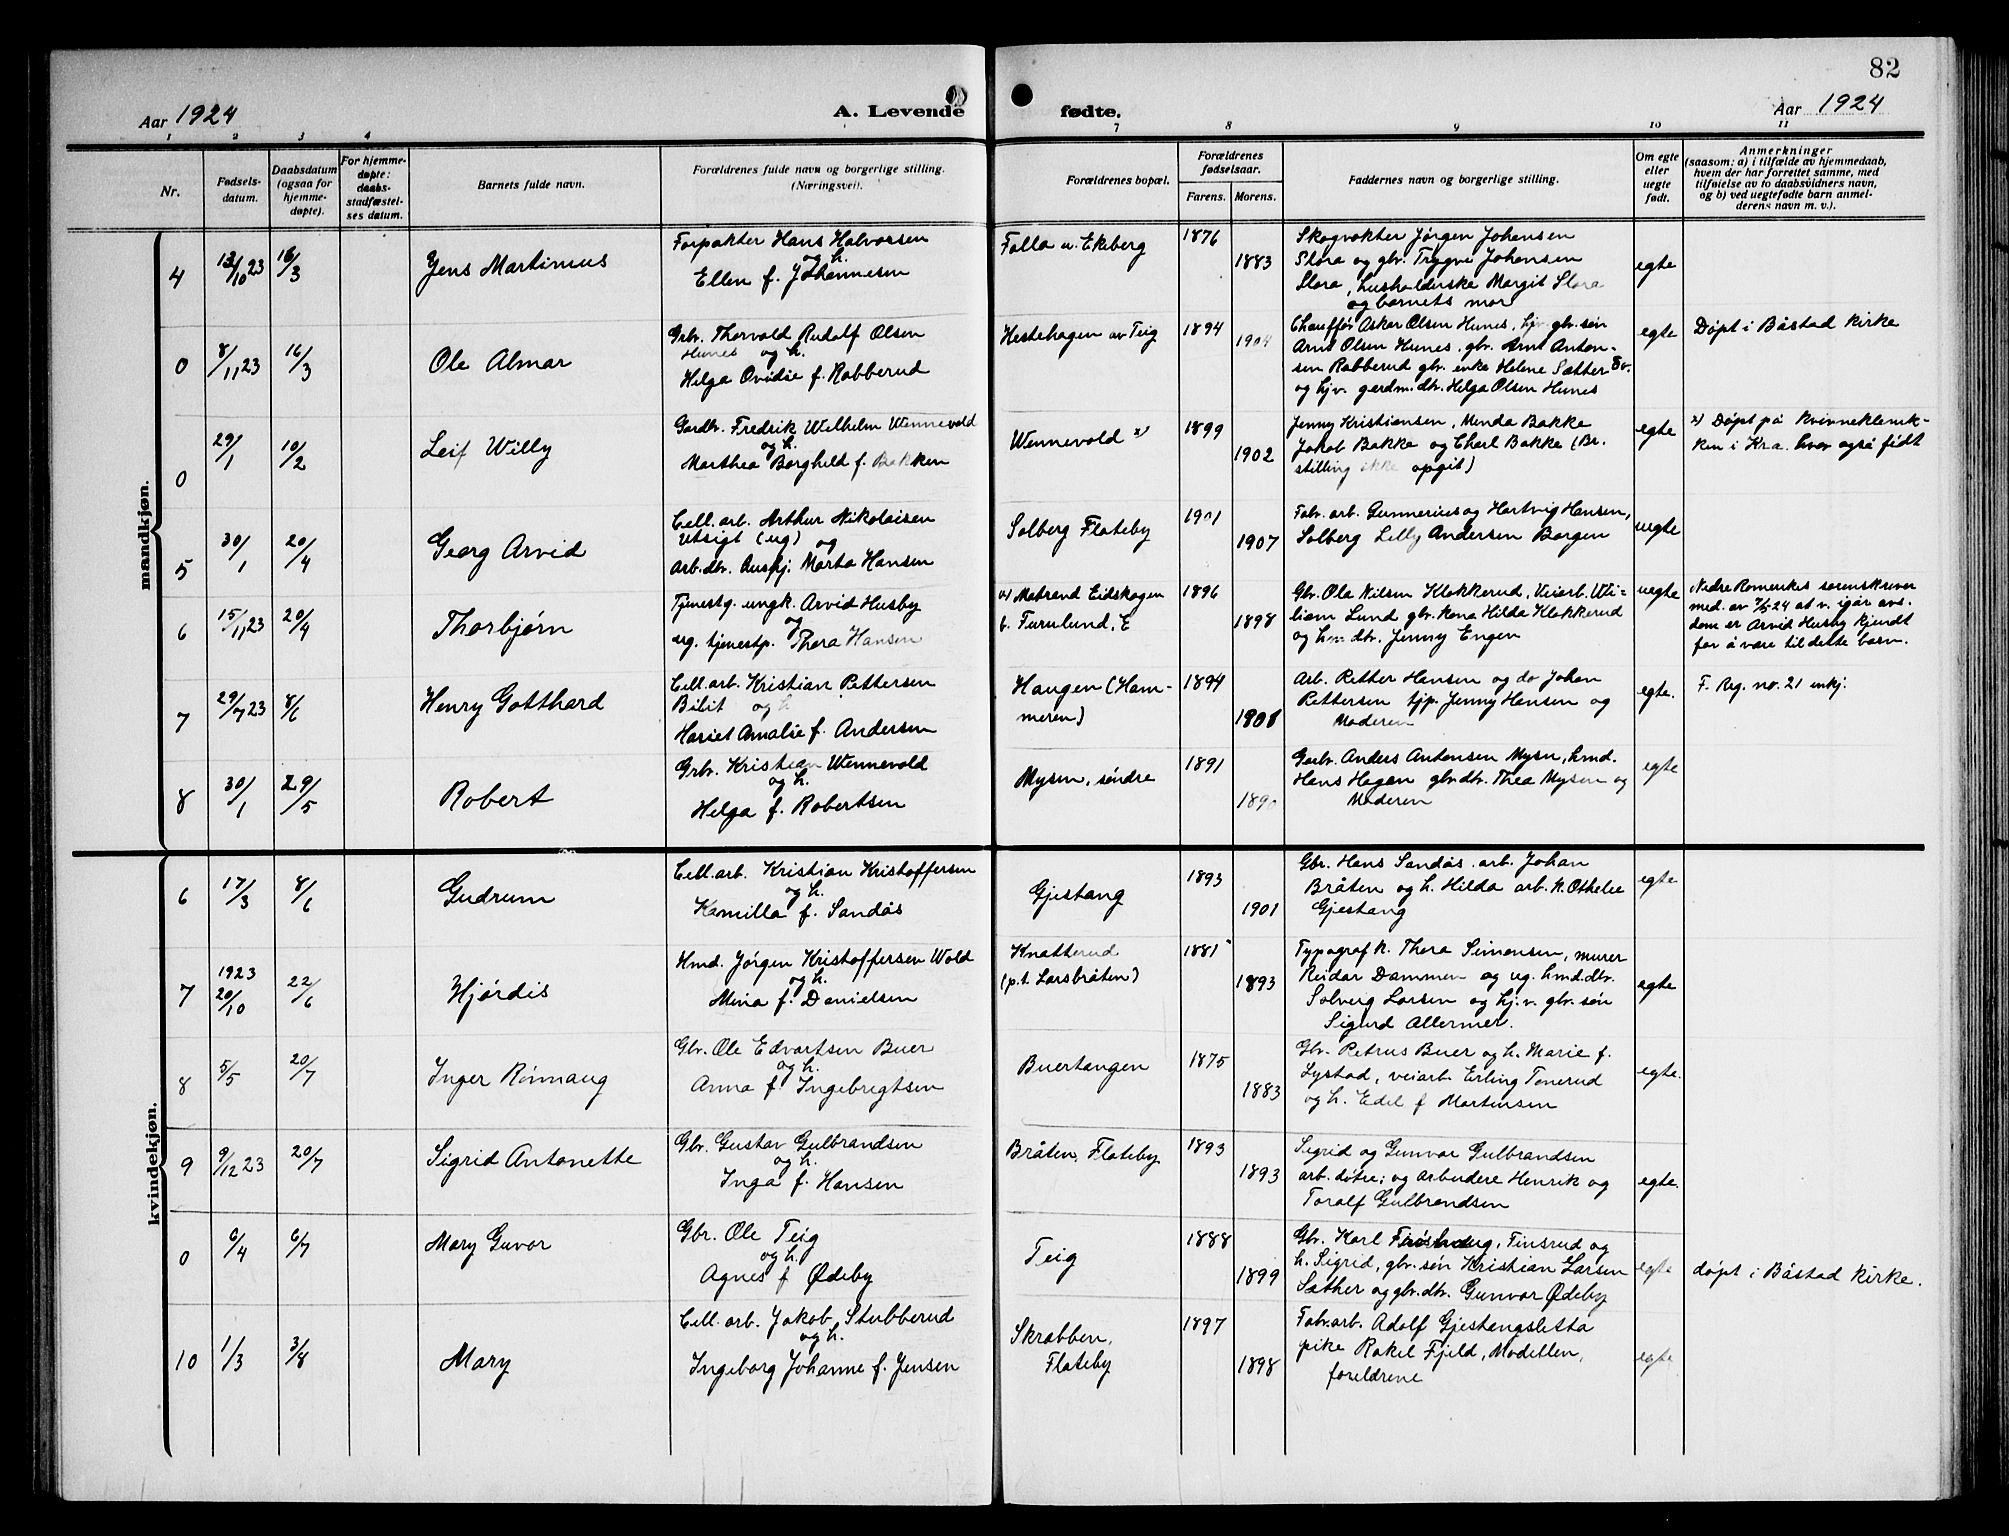 82
Aar 1924
A. Levende fødte.
Aar 1924
1 2 3 4 7 8 9 10 11
Nr.
Fødsels-
datum.
Daabsdatum
(ogsaa for
hjemme-
døpte).
For hjemme-
døpte:
daabs-
stadfæstel-
ses datum.
Barnets fulde navn.
Forældrenes fulde navn og borgerlige stilling.
(Næringsvei).
Forældrenes bopæl.
Forældrenes
fødselsaar.
Farens. Morens.
Faddernes navn og borgerlige stilling.
Om egte
eller
uegte
født.
Anmerkninger
(saasom: a) i tilfælde av hjemmedaab,
hvem der har forrettet samme, med
tilføielse av to daabsvidners navn,
og b) ved uegtefødte barn anmel-
derens navn m. v.).
mandkjøn.
4 13/10 23 16/3 Jens Martinius
Forpakter Hans Halvorsen
og h.
Ellen f. Johannesen
Folla u. Ekeberg
1876
1883
Skogvokter Jørgen Johansen
Slora og gbr. Trygve Johansen
Slora, husholderske Margit Slora
og barnets mor
egte
0 8/11 23 16/3 Ole Almar
Grbr. Thorvald Rudolf Olsen
Hunes og h.
Helga Ovidie f. Rabberud
Hestehagen av Teig
1894
1904
Chauffør Asker Olsen Hunes, hjv. gbr. søn
Arnt Olsen Hunes, gbr. Arnt Anton-
sen Rabberud gbr. enke Helene Sætter Øv.
og hjv. gerdm. dtr. Helga Olsen Hunes
egte
Døpt i Båstad kirke
0 29/1 10/2 Leif Willy
Gardbr. Fredrik Wilhelm Wennevold
og h.
Marthea Borghild f. Bakken
Wennevold x)
1899
1902
Jenny Kristiansen, Minda Bakke
Jakob Bakke og Charl Bakke (Br.
stilling ikke opgit)
egte
x) Døpt på kvinneklinik-
ken i Kra. hvor også født
5 30/1 20/4 Georg Arvid
Cell. arb. Arthur Nikolaisen
Utsigt (ug) og
Arb. dtr. Marta Hansen
Solberg Flateby
1901
1907
Fabr. arb. Gunnerius og Hartvig Hansen,
Solberg Lelly Andersen Borgen
uegte
6 15/11 23 20/4 Thorbjørn
Tjenestg. ungk. Arvid Husby
og
ug. tjenestp. Thora Hansen
a) Matrand Eidskogen
b. Furulund, E
1896
1898
Gbr. Ola Nilsen Klokkerud, Veiarb. Wil-
liam Lund gbr. kona Hilda Klokkerud
og hm. dtr. Jenny Engen
uegte
Nedre Romerikes sorenskriver
med. av 7/5 24 at v. igår avs.
dom er Arvid Husby kjendt
for å være til dette barn.
7 29/7 23 8/6 Henry Gotthard
Cell. arb. Kristian Pettersen
Bilit og h
Hariet Amalie f. Andersen
Haugen (Ham-
meren)
1894
1901
Arb. Petter Hansen og do Johan
Pettersen tjp. Jenny Hansen og
Moderen
egte.
F. Reg. no. 21 enkj.
8 30/1 29/5 Robert
Grbr. Kristian Wennevold
og h.
Helga f. Robertsen
Mysen, søndre
1891
Garbr. Anders Antonsen Mysen, hmd.
Hans Hagen gbr. dtr. Thea Mysen og
Moderen
egte
kvindekjøn.
6 17/3 8/6 Gudrun
Cell. arb. Kristian Kristoffersen
og h.
Kamilla f. Sandås
Gjestang
1893
1901
Gbr. Hans Sandås. arb. Johan
Bråten og h. Hilda arb. k. Othelie
Gjestang
egte
7 1923 20/10 22/6 Hjørdis
Hmd. Jørgen Kristoffersen Wold
og h.
Mina f. Danielsen
Knatterud
(p.t. Larsbråten)
1881
1893
Typograf k. Thora Simensen, murer
Reidar Dammen og ug. hmd. dtr.
Solverg Larsen og hj. v. gbr. søn
Sigurd Allermer.
egte
8 5/5 20/7 Inger Rønnaug
Gbr. Ole Edvartsen Buer
og h.
Anna f Ingebrigtsen
Buertangen
1875
1883
Gbr. Petrus Buer og h. Marie f.
Lystad, veiarb. Erling Tonerud
og h. Edel f Martinsen
egte.
9 9/12 23 20/7 Sigrid Antonette
Gbr. Gustav Gulbrandsen
og h.
Inga f. Hansen
Bråten, Flateby
1893
1893
Sigrid og Gunvor Gulbrandsen
arb. døtre; og Arbeidere Henrik og
Toralf Gulbrandsen
egte.
0 6/4 6/7 Mary Guvor
Gbr. Ole Teig
og h.
Agnes f Ødeby
Teig
1888
1899
Gbr. Karl Finsrud og
h. Sigrid, gbr. søn Kristian Larsen
Sæther og gbr. dtr. Gunvor Ødeby
egte
døpt i Båstad kirke.
10 1/3 3/8 Mary
Cell. arb. Jakob Stubberud
og h.
Ingeborg Johanne f. Jensen
Skrabben,
Flateby
1897
1898
Fabr. arb. Adolf Gjestangsletta
pike Rakel Fjeld, Modellen,
foreldrene
egte